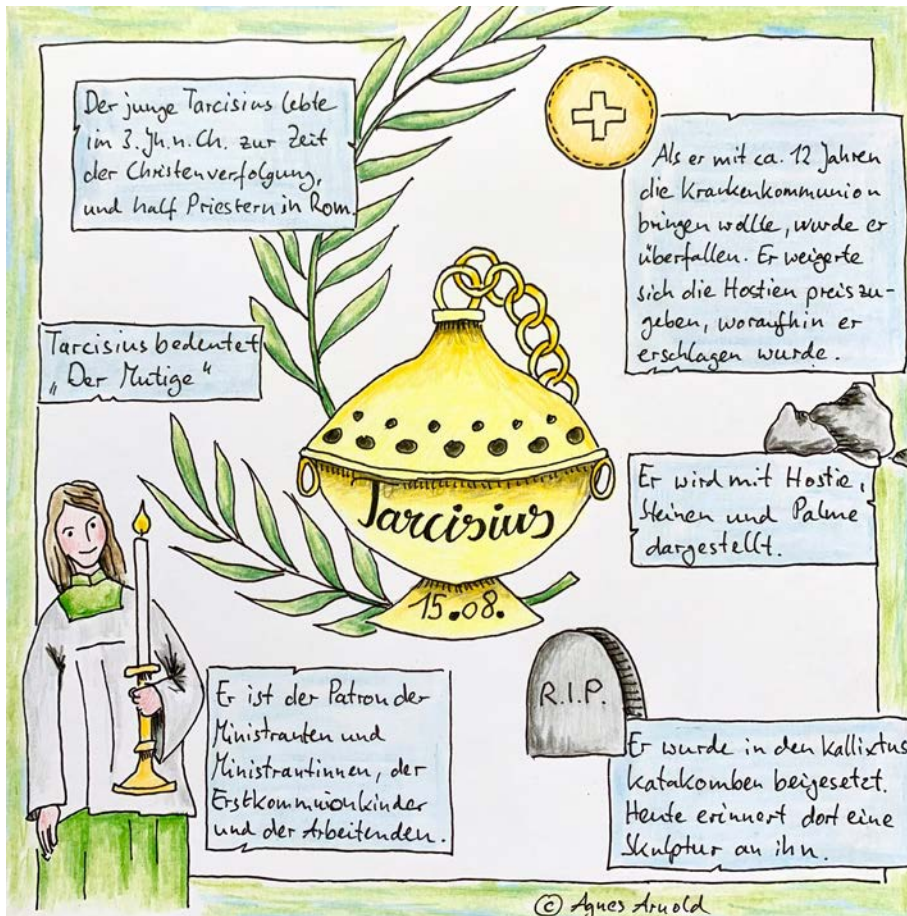 Der junge Tarcisius lebte
im 3. Jh. n. Ch. zur Zeit
der Christenverfolgung,
und half Priestern in Rom.
Als er mit ca. 12 Jahren
die Krankenkommunion
bringen wollte, wurde er
überfallen. Er weigerte
sich die Hostien preiszu-
geben, woraufhin er
erschlagen wurde.
Tarcisius bedeutet
„Der Mutige“
Tarcisius
15.08.
Er wird mit Hostie,
Steinen und Palme
dargestellt.
Er ist der Patron der
Ministranten und
Ministrantinnen, der
Erstkommunionkinder
und der Arbeitenden.
R.I.P.
Er wurde in den Kallixtus
Katakomben beigesetzt.
Heute erinnert dort eine
Skulptur an ihn.
© Agnes Arnold